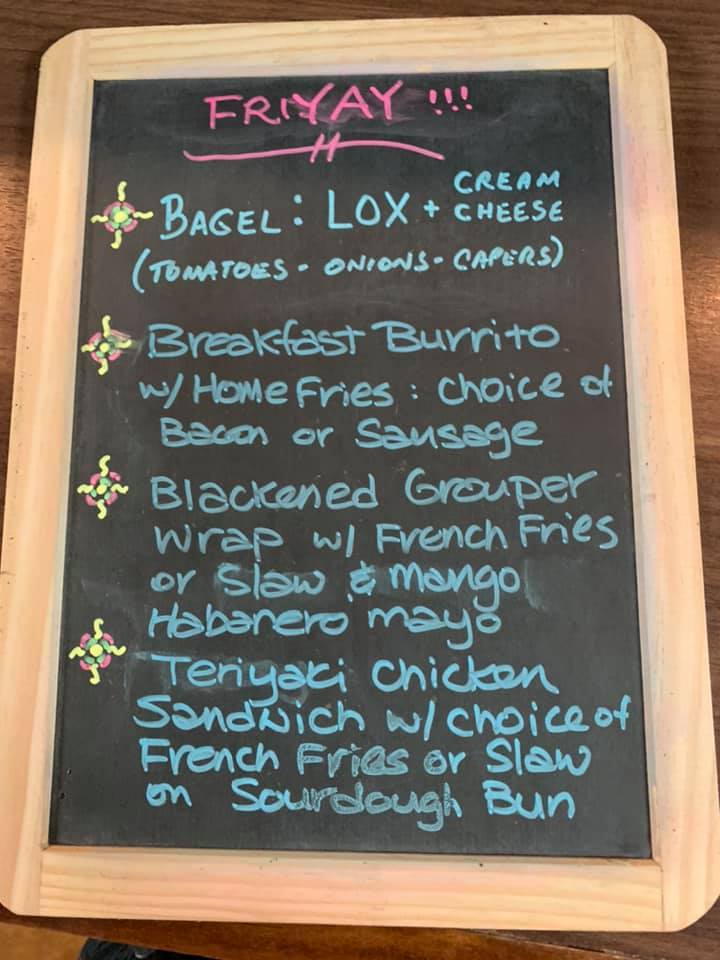 FRIYAY !!!
BAGEL: LOX + CREAM CHEESE
(TOMATOES - ONIONS - CAPERS)
Breakfast Burrito
w/ Home Fries : choice of
Bacon or Sausage
Blackened Grouper
Wrap w/ French Fries
or Slaw & mango
Habanero mayo
Teriyaki Chicken
Sandwich w/ choice of
French Fries or Slaw
on Sourdough Bun